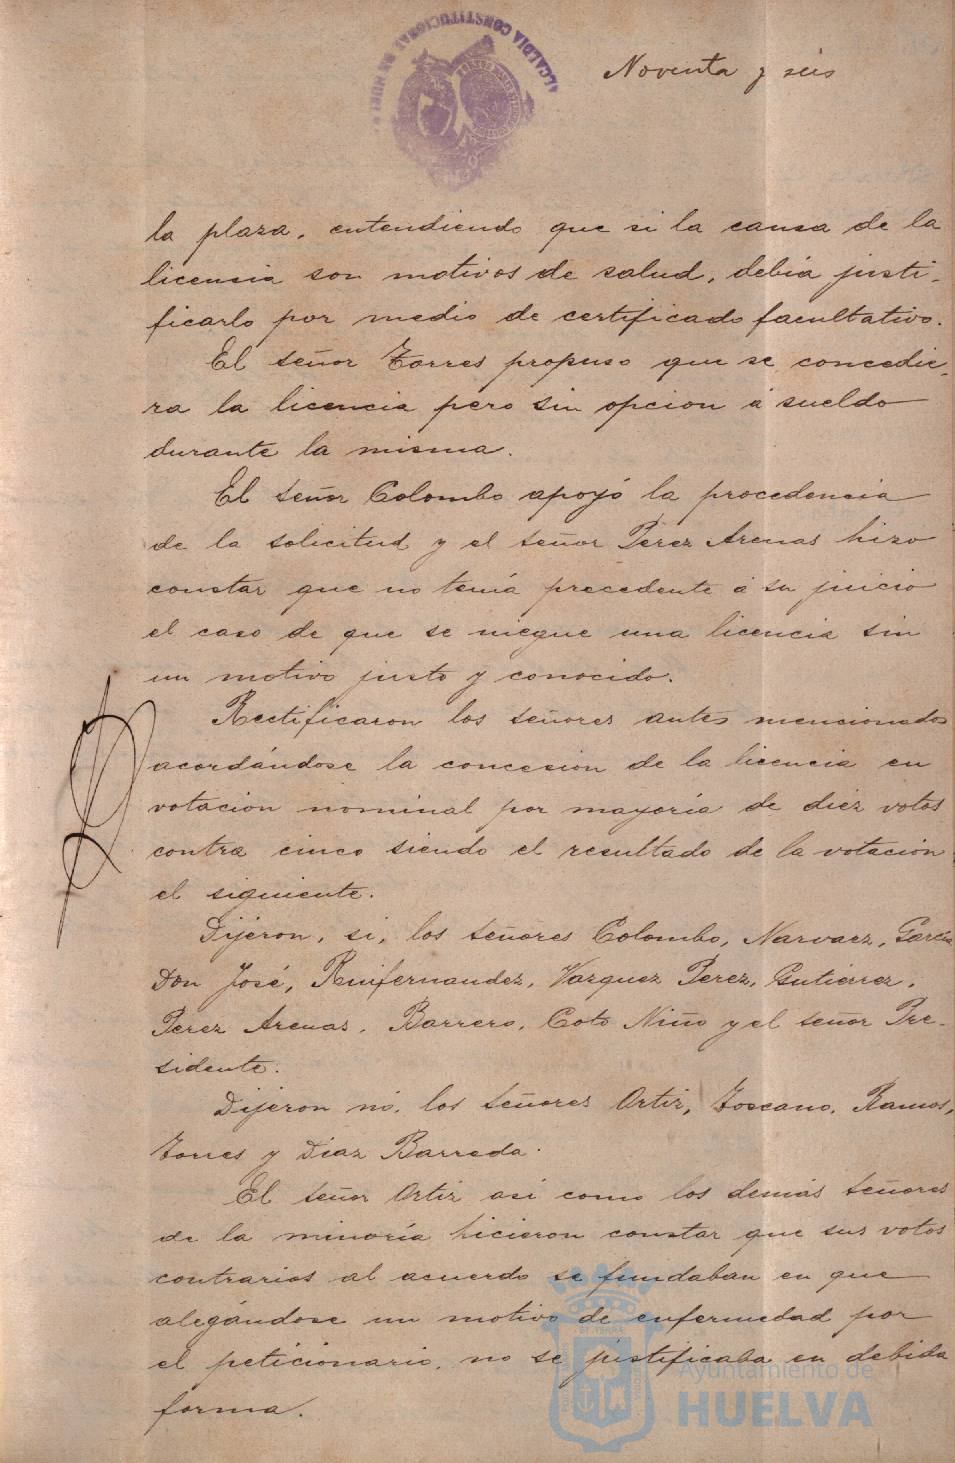 ALCALDIA CONSTITUCIONAL DE HUELVA
Noventa y seis
la plaza, entendiendo que si la causa de la
licencia son motivos de salud, debia justi-
ficarlo por medio de certificado facultativo.
El señor Torres propuso que se concedie-
ra la licencia pero sin opcion á sueldo
durante la misma.
El señor Colombo apoyó la procedencia
de la solicitud y el señor Perez Arenas hizo
constar que no tenía precedente á su juicio
el caso de que se niegue una licencia sin
un motivo justo y conocido.
Rectificaron los señores antes mencionados
acordándose la concesion de la licencia en
votacion nominal por mayoría de diez votos
contra cinco siendo el resultado de la votacion
el siguiente.
Dijeron, si, los señores Colombo, Narvaez, García
Don José, Ruifernandez, Vazquez Perez, Gutierrez,
Perez Arenas, Barrero, Coto Niño y el señor Pre-
sidente.
Dijeron no, los señores Ortiz, Toscano, Ramos,
Torres y Díaz Barreda.
El señor Ortiz asi como los demás señores
de la minoría hicieron constar que sus votos
contrarios al acuerdo se fundaban en que
alegándose un motivo de enfermedad por
el peticionario, no se justificaba en debida
forma.
Ayuntamiento de
HUELVA